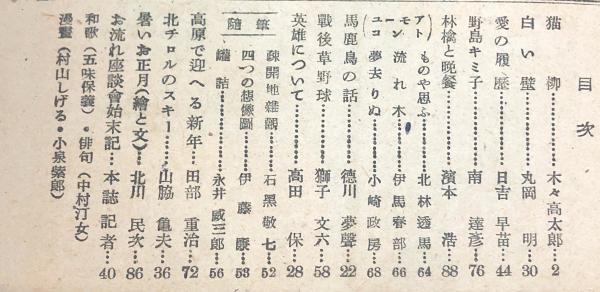 目次
猫柳……木々高太郎…2
白い璧……丸岡明…30
愛の履歷……日吉早苗…44
野島キミ子……南達彥…76
林檎と晩餐……濱本浩…88
アトモンーユコ
ものや思ふ……北林透馬…64
流れ木……伊馬春部…66
夢去りぬ……小崎政房…68
馬鹿鳥の話……德川夢聲…22
戰後草野球……獅子文六…58
英雄について……高田保…28
隨筆
疎開地雜觀……石黑敬七…52
四つの想像圖……伊藤康…53
罐詰……永井威三郎…56
高原で迎へる新年…田部重治…72
北チロルのスキー……山脇龜夫…36
暑いお正月(繪と文)…北川民次…86
お流れ座談會始末記…本誌記者…40
和歌(五味保義)・俳句(中村汀女)
漫畫(村山しげる・小泉紫郎)